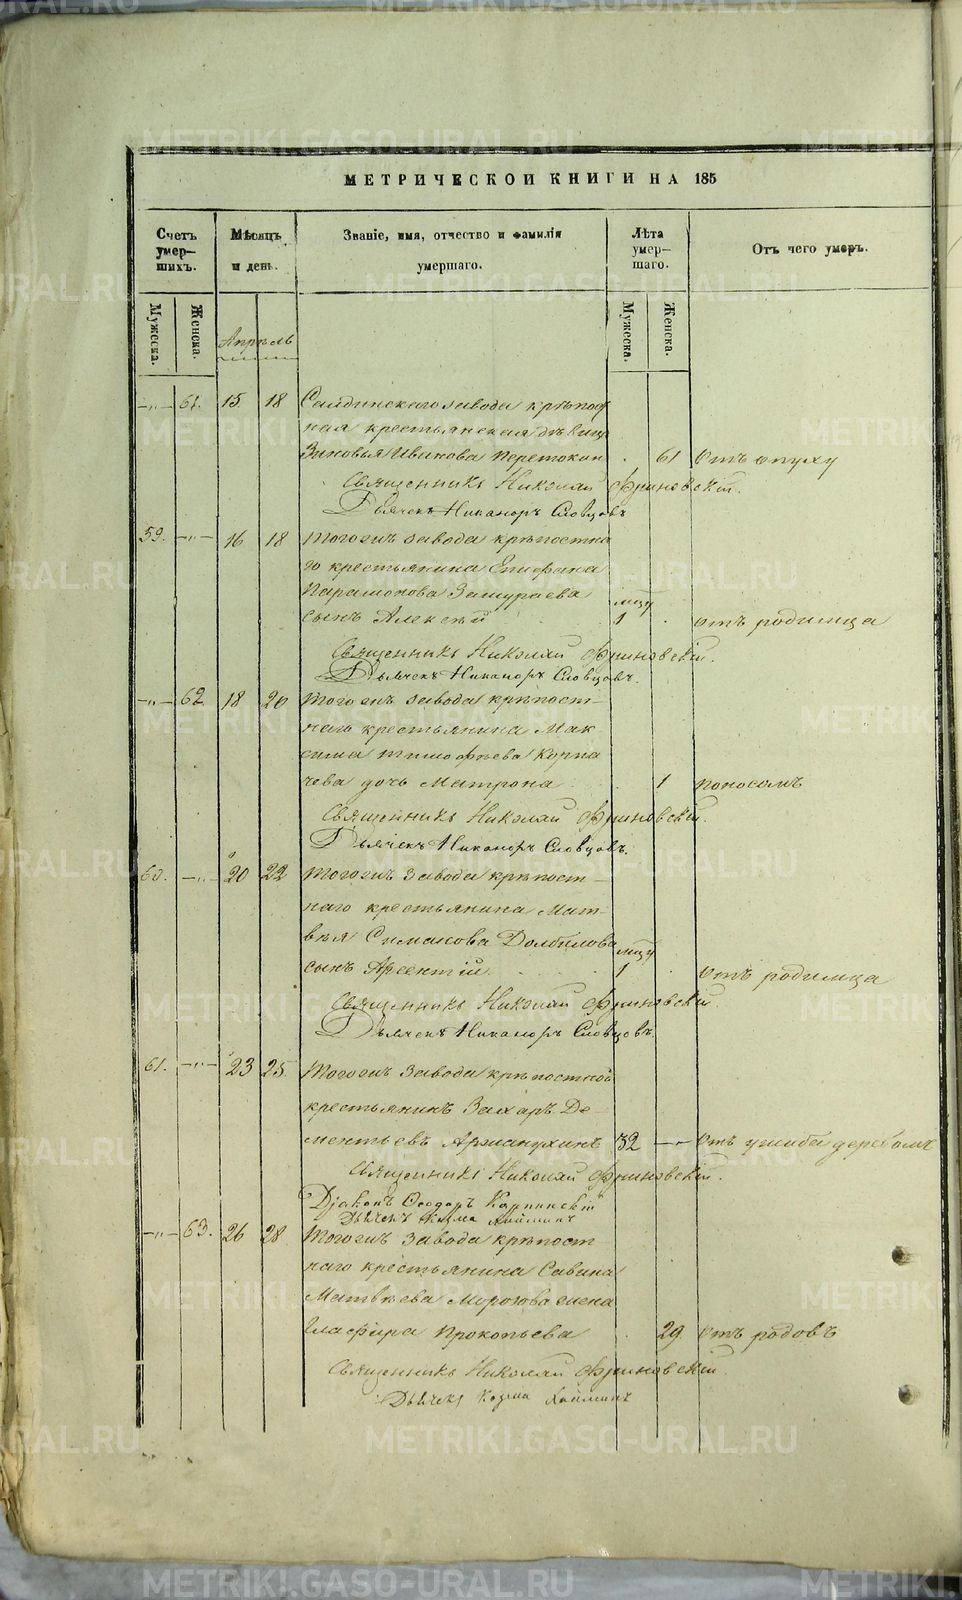 МЕТРИЧЕСКОЙ КНИГИ НА 185
Счетъ умер-шихъ.
Мѣсяцъ и день.
Званіе, имя, отчество и фамилія умершаго.
Лѣта умер-шаго.
Отъ чего умеръ.
Мужеска.
Женска.
Мужеска.
Женска.
Апрѣль
—"— 61. 15 18 Салдинскаго завода крѣпос
ная крестьянская дѣвица
Зиновья Иванова 61 отъ опуху
Священникъ Николай
Дьячекъ Никаноръ Словцовъ
59. —"— 16 18 Тогоже завода крѣпостна
го крестьянина Епифана
Парамонова мцъ
сынъ Алексѣй 1 отъ родимца
Священникъ Николай
Дьячекъ Никаноръ Словцовъ.
—"— 62 18 20 Тогоже завода крѣпост-
наго крестьянина Мак-
сима Тимофѣева
чева дочь Матрона 1 поносомъ
Священникъ Николай
Дьячекъ Никаноръ Словцовъ.
60. —"— 20 22 Тогоже завода крѣпост-
наго крестьянина Мат-
вѣя Симанова Долбилова мцъ
сынъ Арсентій 1 отъ родимца
Священникъ Николай
Дьячекъ Никаноръ Словцовъ.
61. —"— 23 25 Тогоже завода крѣпостной
крестьянинъ Захаръ Де-
ментьевъ 32 — отъ ушиба деревомъ
Священникъ Николай
Діаконъ Ѳеодоръ Карпинскій
Дьячекъ Козма
—"— 63. 26 28 Тогоже завода крѣпост
наго крестьянина Савина
Матвѣева Морозова жена
Глафира Прокопьева 29 отъ родовъ
Священникъ Николай
Дьячекъ Козма
METRIKI.GASO-URAL.RU